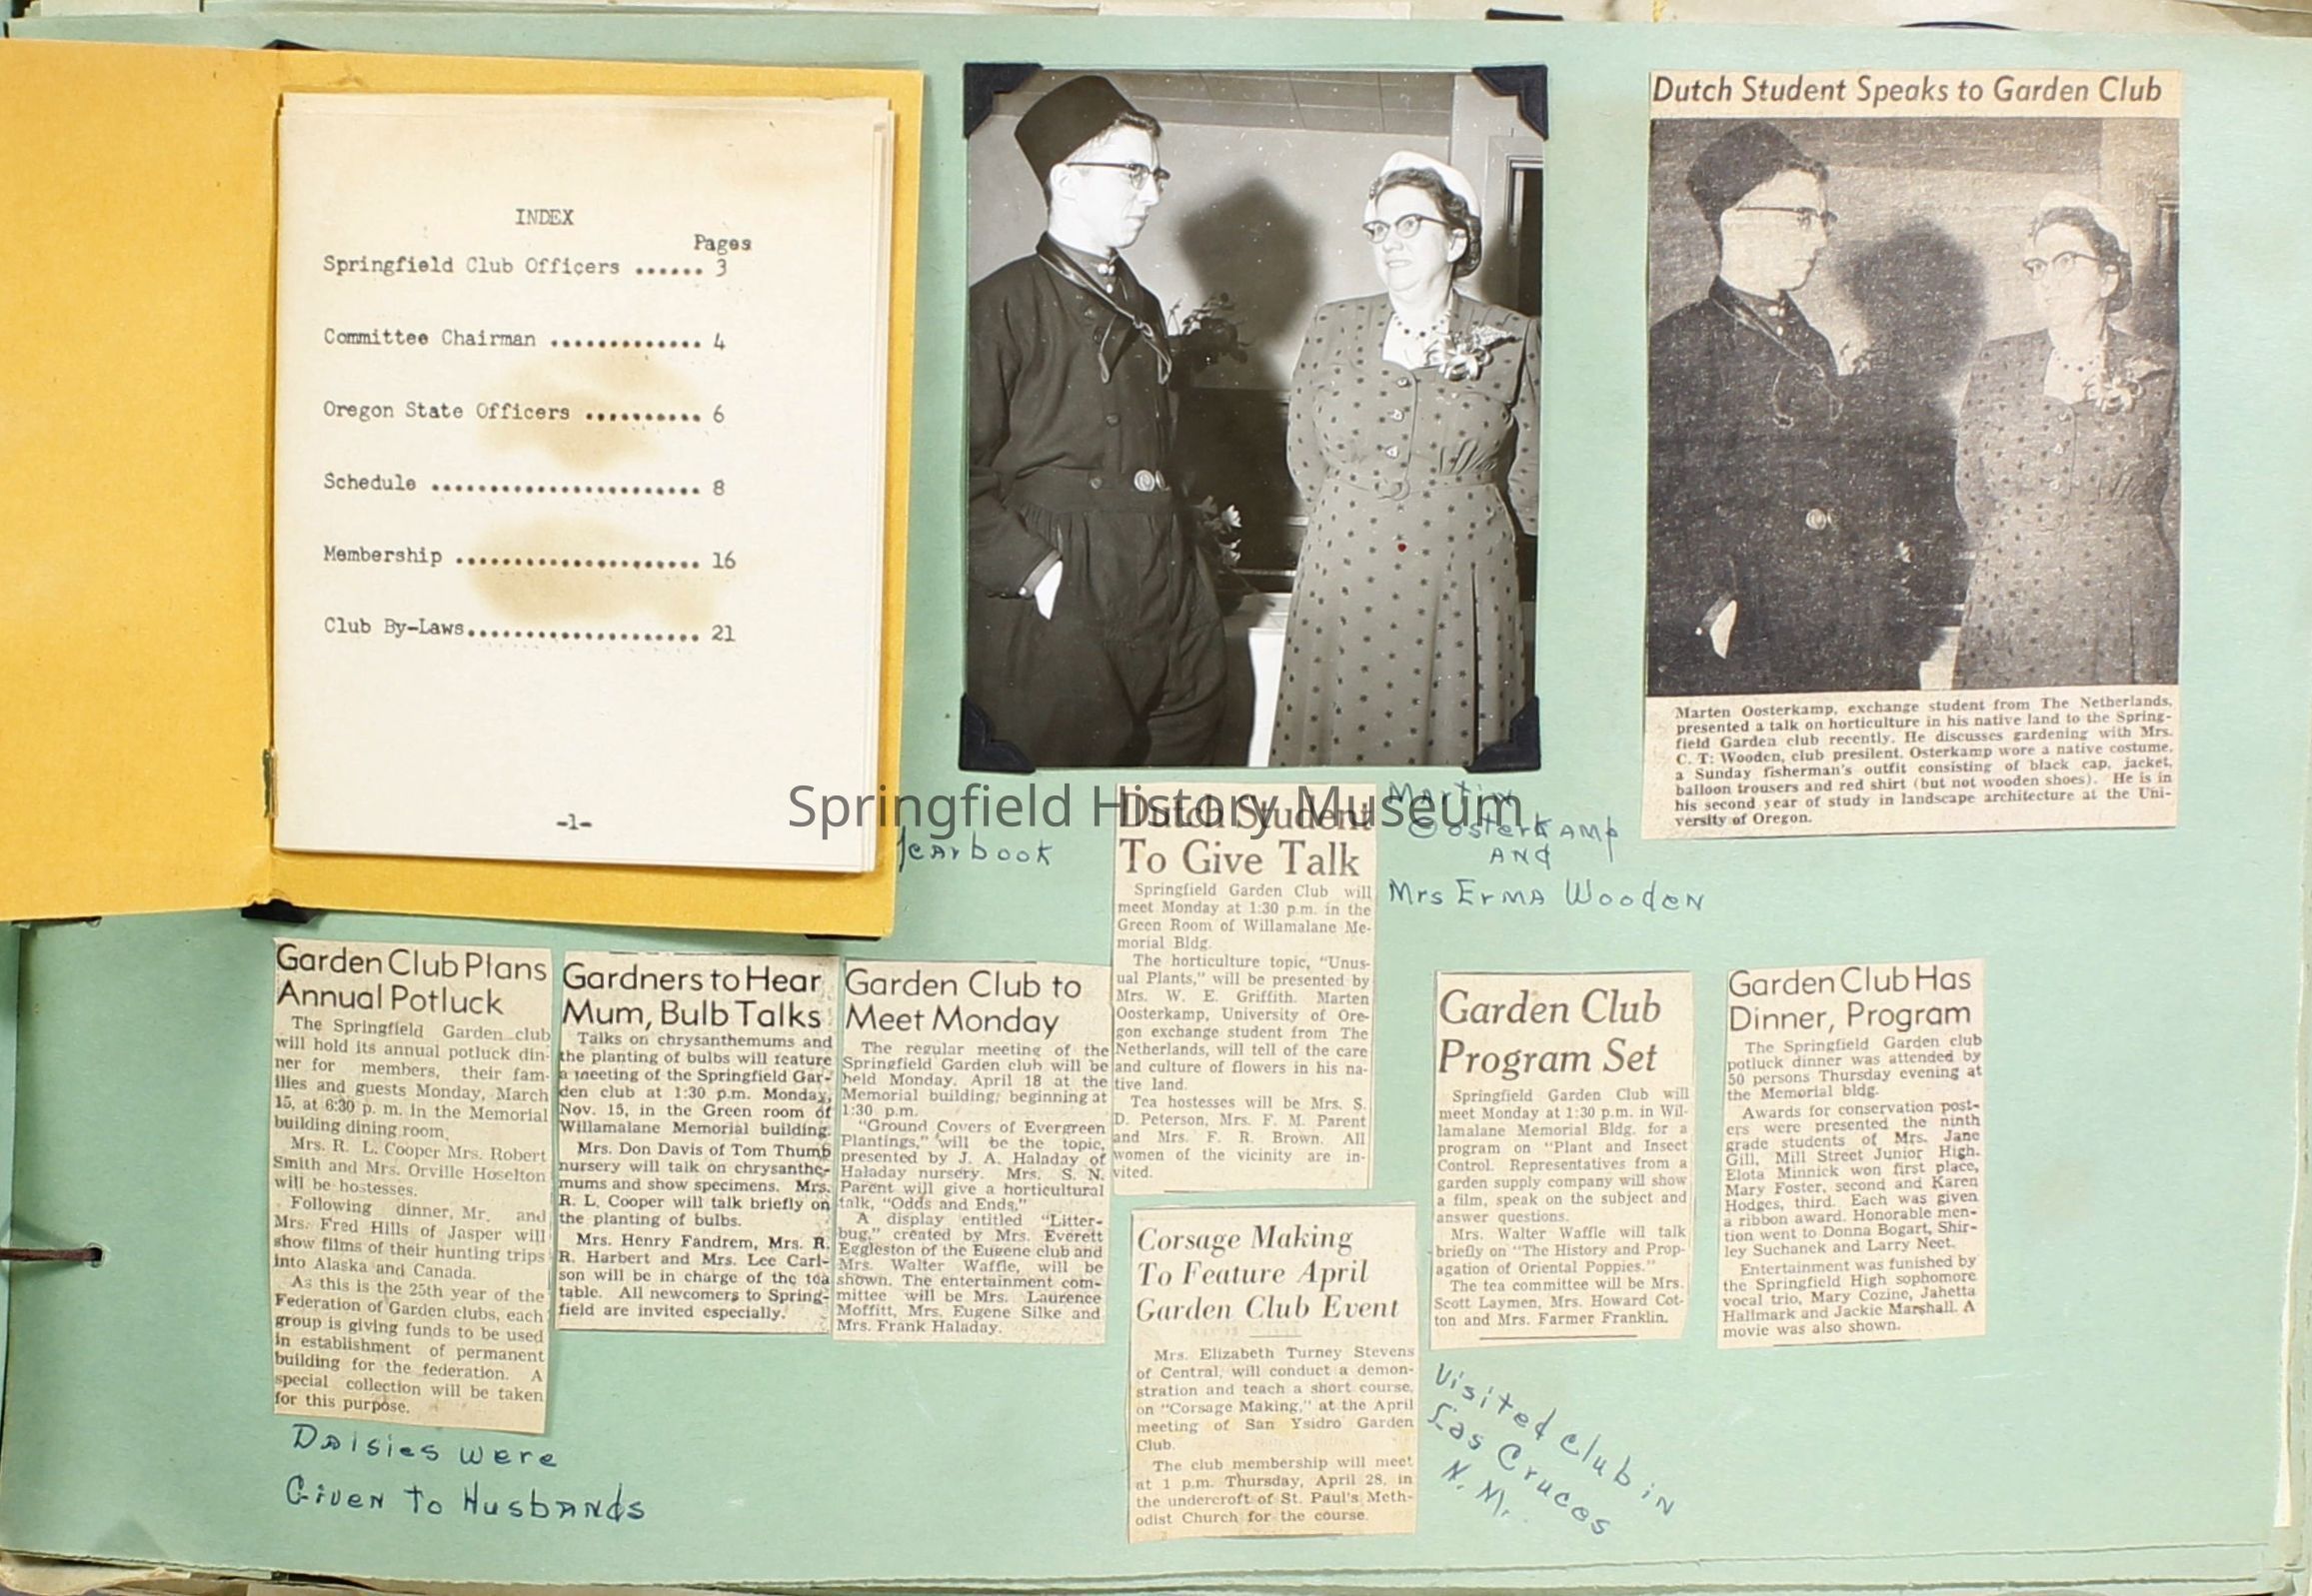 INDEX
Pages
Springfield Club Officers ...... 3
Committee Chairman ............. 4
Oregon State Officers .......... 6
Schedule ....................... 8
Membership ..................... 16
Club By-Laws.................... 21
-1-
Yearbook
Dutch Student Speaks to Garden Club
Marten Oosterkamp, exchange student from The Netherlands,
presented a talk on horticulture in his native land to the Spring-
field Garden club recently. He discusses gardening with Mrs.
C. T: Wooden, club presilent. Osterkamp wore a native costume,
a Sunday fisherman's outfit consisting of black cap, jacket,
balloon trousers and red shirt (but not wooden shoes). He is in
his second year of study in landscape architecture at the Uni-
versity of Oregon.
Springfield History Museum
Martin
OosterkAmp
AND
Mrs ErmA Wooden
Dutch Student
To Give Talk
Springfield Garden Club will
meet Monday at 1:30 p.m. in the
Green Room of Willamalane Me-
morial Bldg.
The horticulture topic, "Unus-
ual Plants," will be presented by
Mrs. W. E. Griffith. Marten
Oosterkamp, University of Ore-
gon exchange student from The
Netherlands, will tell of the care
and culture of flowers in his na-
tive land.
Tea hostesses will be Mrs. S.
D. Peterson, Mrs. F. M. Parent
and Mrs. F. R. Brown. All
women of the vicinity are in-
vited.
Garden Club Plans
Annual Potluck
The Springfield Garden club
will hold its annual potluck din-
ner for members, their fam-
ilies and guests Monday, March
15, at 6:30 p. m. in the Memorial
building dining room.
Mrs. R. L. Cooper Mrs. Robert
Smith and Mrs. Orville Hoselton
will be hostesses.
Following dinner, Mr. and
Mrs. Fred Hills of Jasper will
show films of their hunting trips
into Alaska and Canada.
As this is the 25th year of the
Federation of Garden clubs, each
group is giving funds to be used
in establishment of permanent
building for the federation. A
special collection will be taken
for this purpose.
Daisies were
Given to Husbands
Gardners to Hear
Mum, Bulb Talks
Talks on chrysanthemums and
the planting of bulbs will feature
a meeting of the Springfield Gar-
den club at 1:30 p.m. Monday,
Nov. 15, in the Green room of
Willamalane Memorial building.
Mrs. Don Davis of Tom Thumb
nursery will talk on chrysanthe-
mums and show specimens. Mrs.
R. L. Cooper will talk briefly on
the planting of bulbs.
Mrs. Henry Fandrem, Mrs. R.
R. Harbert and Mrs. Lee Carl-
son will be in charge of the tea
table. All newcomers to Spring-
field are invited especially.
Garden Club to
Meet Monday
The regular meeting of the
Springfield Garden club will be
held Monday, April 18 at the
Memorial building, beginning at
1:30 p.m.
"Ground Covers of Evergreen
Plantings," will be the topic,
presented by J. A. Haladay of
Haladay nursery. Mrs. S. N.
Parent will give a horticultural
talk, "Odds and Ends."
A display entitled "Litter-
bug," created by Mrs. Everett
Eggleston of the Eugene club and
Mrs. Walter Waffle, will be
shown. The entertainment com-
mittee will be Mrs. Laurence
Moffitt, Mrs. Eugene Silke and
Mrs. Frank Haladay.
Corsage Making
To Feature April
Garden Club Event
Mrs. Elizabeth Turney Stevens
of Central, will conduct a demon-
stration and teach a short course,
on "Corsage Making," at the April
meeting of San Ysidro Garden
Club.
The club membership will meet
at 1 p.m. Thursday, April 28, in
the undercroft of St. Paul's Meth-
odist Church for the course.
Garden Club
Program Set
Springfield Garden Club will
meet Monday at 1:30 p.m. in Wil-
lamalane Memorial Bldg. for a
program on "Plant and Insect
Control. Representatives from a
garden supply company will show
a film, speak on the subject and
answer questions.
Mrs. Walter Waffle will talk
briefly on "The History and Prop-
agation of Oriental Poppies."
The tea committee will be Mrs.
Scott Laymen, Mrs. Howard Cot-
ton and Mrs. Farmer Franklin.
Visited club in
Las Cruces
N. M.
Garden Club Has
Dinner, Program
The Springfield Garden club
potluck dinner was attended by
50 persons Thursday evening at
the Memorial bldg.
Awards for conservation post-
ers were presented the ninth
grade students of Mrs. Jane
Gill, Mill Street Junior High.
Elota Minnick won first place,
Mary Foster, second and Karen
Hodges, third. Each was given
a ribbon award. Honorable men-
tion went to Donna Bogart, Shir-
ley Suchanek and Larry Neet.
Entertainment was funished by
the Springfield High sophomore
vocal trio, Mary Cozine, Jahetta
Hallmark and Jackie Marshall. A
movie was also shown.